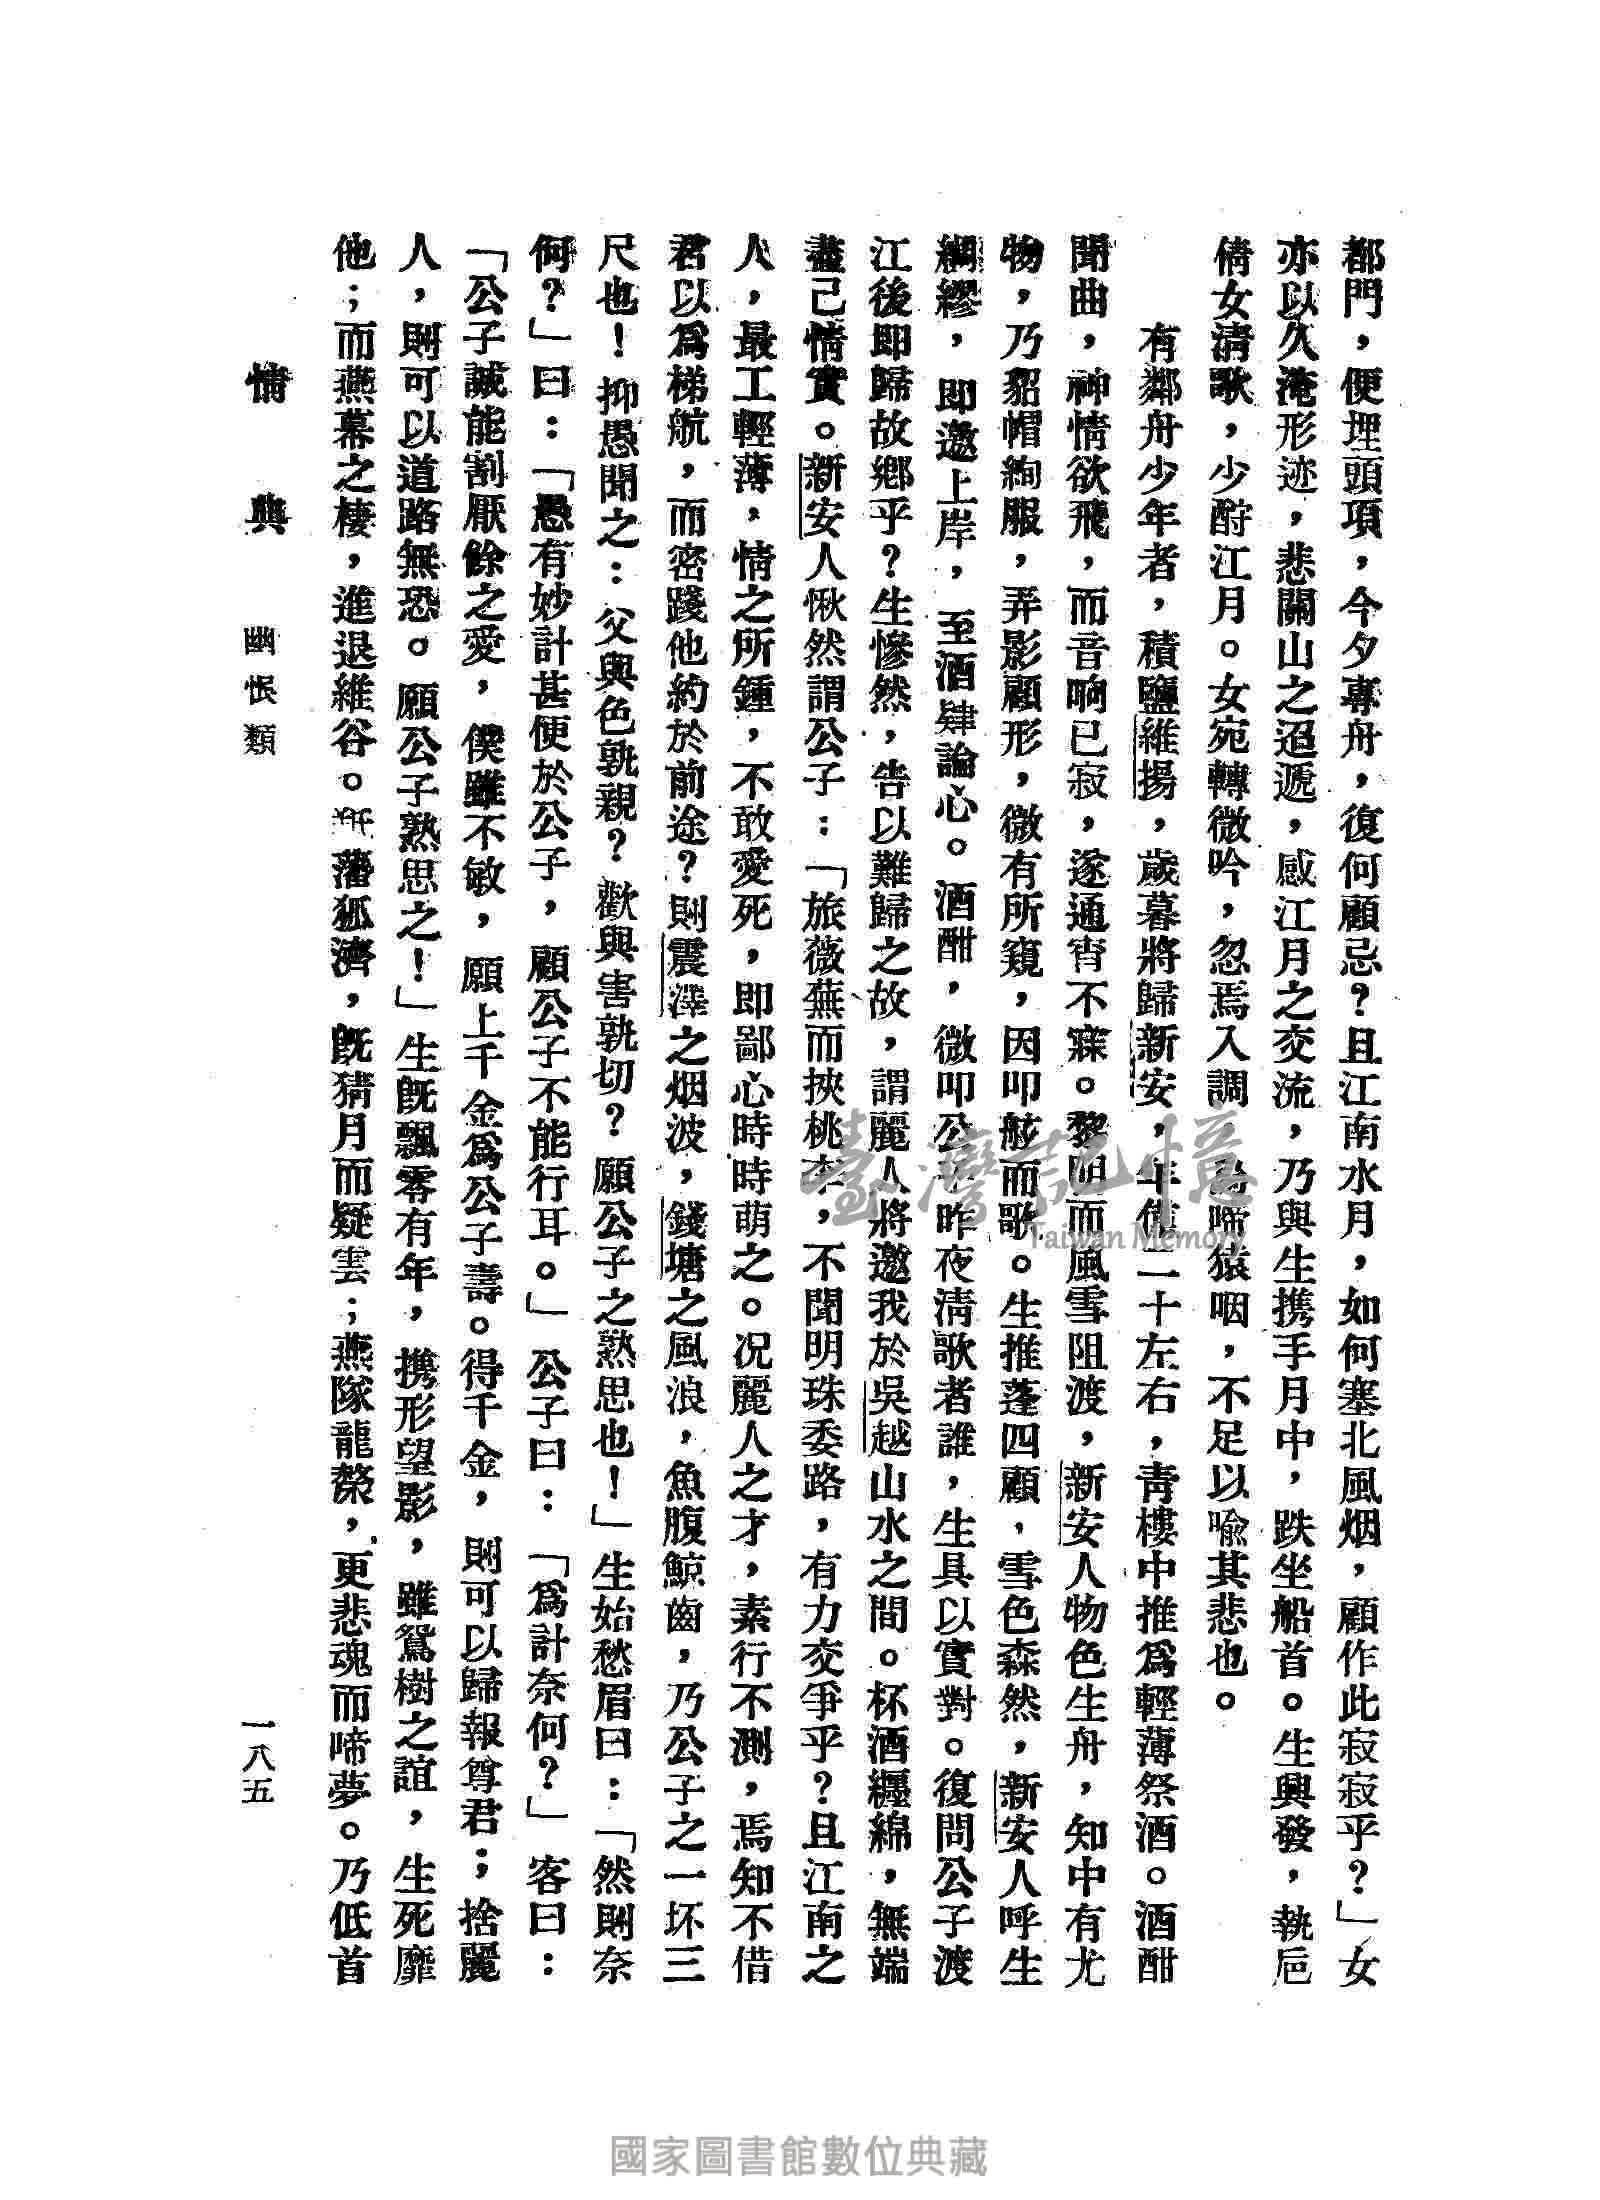 都門，便埋頭項，今夕專舟，復何顧忌？且江南水月，如何塞北風烟，顧作此寂寂乎？」女
亦以久淹形迹，悲關山之迢遞，感江月之交流，乃與生攜手月中，跌坐船首。生興發，執巵
倩女清歌，少酹江月。女宛轉微吟，忽焉入調，烏啼猿咽，不足以喩其悲也。
有鄰舟少年者，積鹽維揚，歲暮將歸新安，年僅二十左右，靑樓中推爲輕薄祭酒。酒酣
聞曲，神情欲飛，而音响已寂，遂通宵不寐。黎明而風雪阻渡，新安人物色生舟，知中有尤
物，乃貂帽絢服，弄影顧形，微有所窺，因叩舷而歌。生推蓬四顧，雪色森然，新安人呼生
綢繆，卽邀上岸，至酒肆論心。酒酣，微叩公子昨夜淸歌者誰，生具以實對。復問公子渡
江後卽歸故鄉乎？生慘然，告以難歸之故，謂麗人將邀我於吳越山水之間。杯酒纏綿，無端
盡己情實。新安人愀然謂公子：「旅薇蕪而挾桃李，不聞明珠委路，有力交爭乎？且江南之
人，最工輕薄，情之所鍾，不敢愛死，卽鄙心時時萌之。况麗人之才，素行不測，焉知不借
君以爲梯航，而密踐他約於前途？則震澤之烟波，錢塘之風浪，魚腹鯨齒，乃公子之一坏三
尺也！抑愚聞之：父與色孰親？歡與害孰切？願公子之熟思也！」生始愁眉曰：「然則奈
何？」曰：「愚有妙計甚便於公子，顧公子不能行耳。」公子曰：「爲計奈何？」客曰：
「公子誠能割厭餘之愛，僕雖不敏，願上千金爲公子壽。得千金，則可以歸報尊君；捨麗
人，則可以道路無恐。願公子熟思之！」生旣飄零有年，攜形望影，雖鴛樹之誼，生死靡
他；而燕幕之棲，進退維谷。藩狐濟，旣猜月而疑雲；燕隊龍漦，更悲魂而啼夢。乃低首
情典　幽恨類　一八五
臺灣記憶
Taiwan Memory
國家圖書館數位典藏